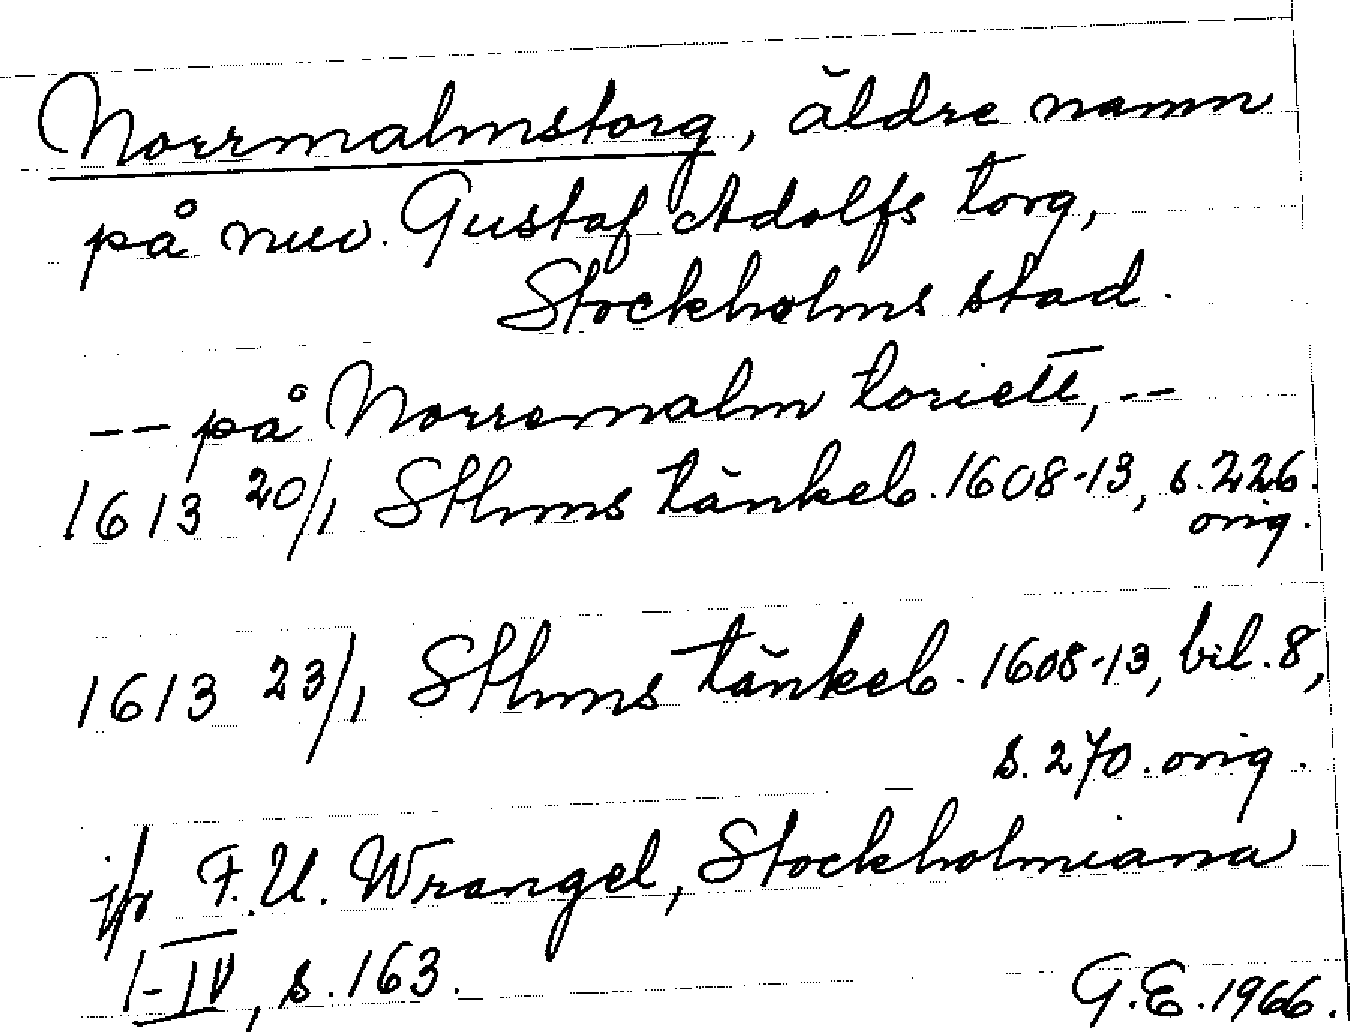 Norrmalmstorg, äldre namn
på nuv. Gustaf Adolfs torg,
Stockholms stad.
-- på Norremalm toriett, --
1613 20/1 Sthms tänkeb. 1608-13, s. 226.
orig.
1613 23/1 Sthms tänkeb. 1608-13, bil. 8,
s. 270. orig.
jfr F. U. Wrangel, Stockholmiana
I-IV, s. 163.
G.E. 1966.